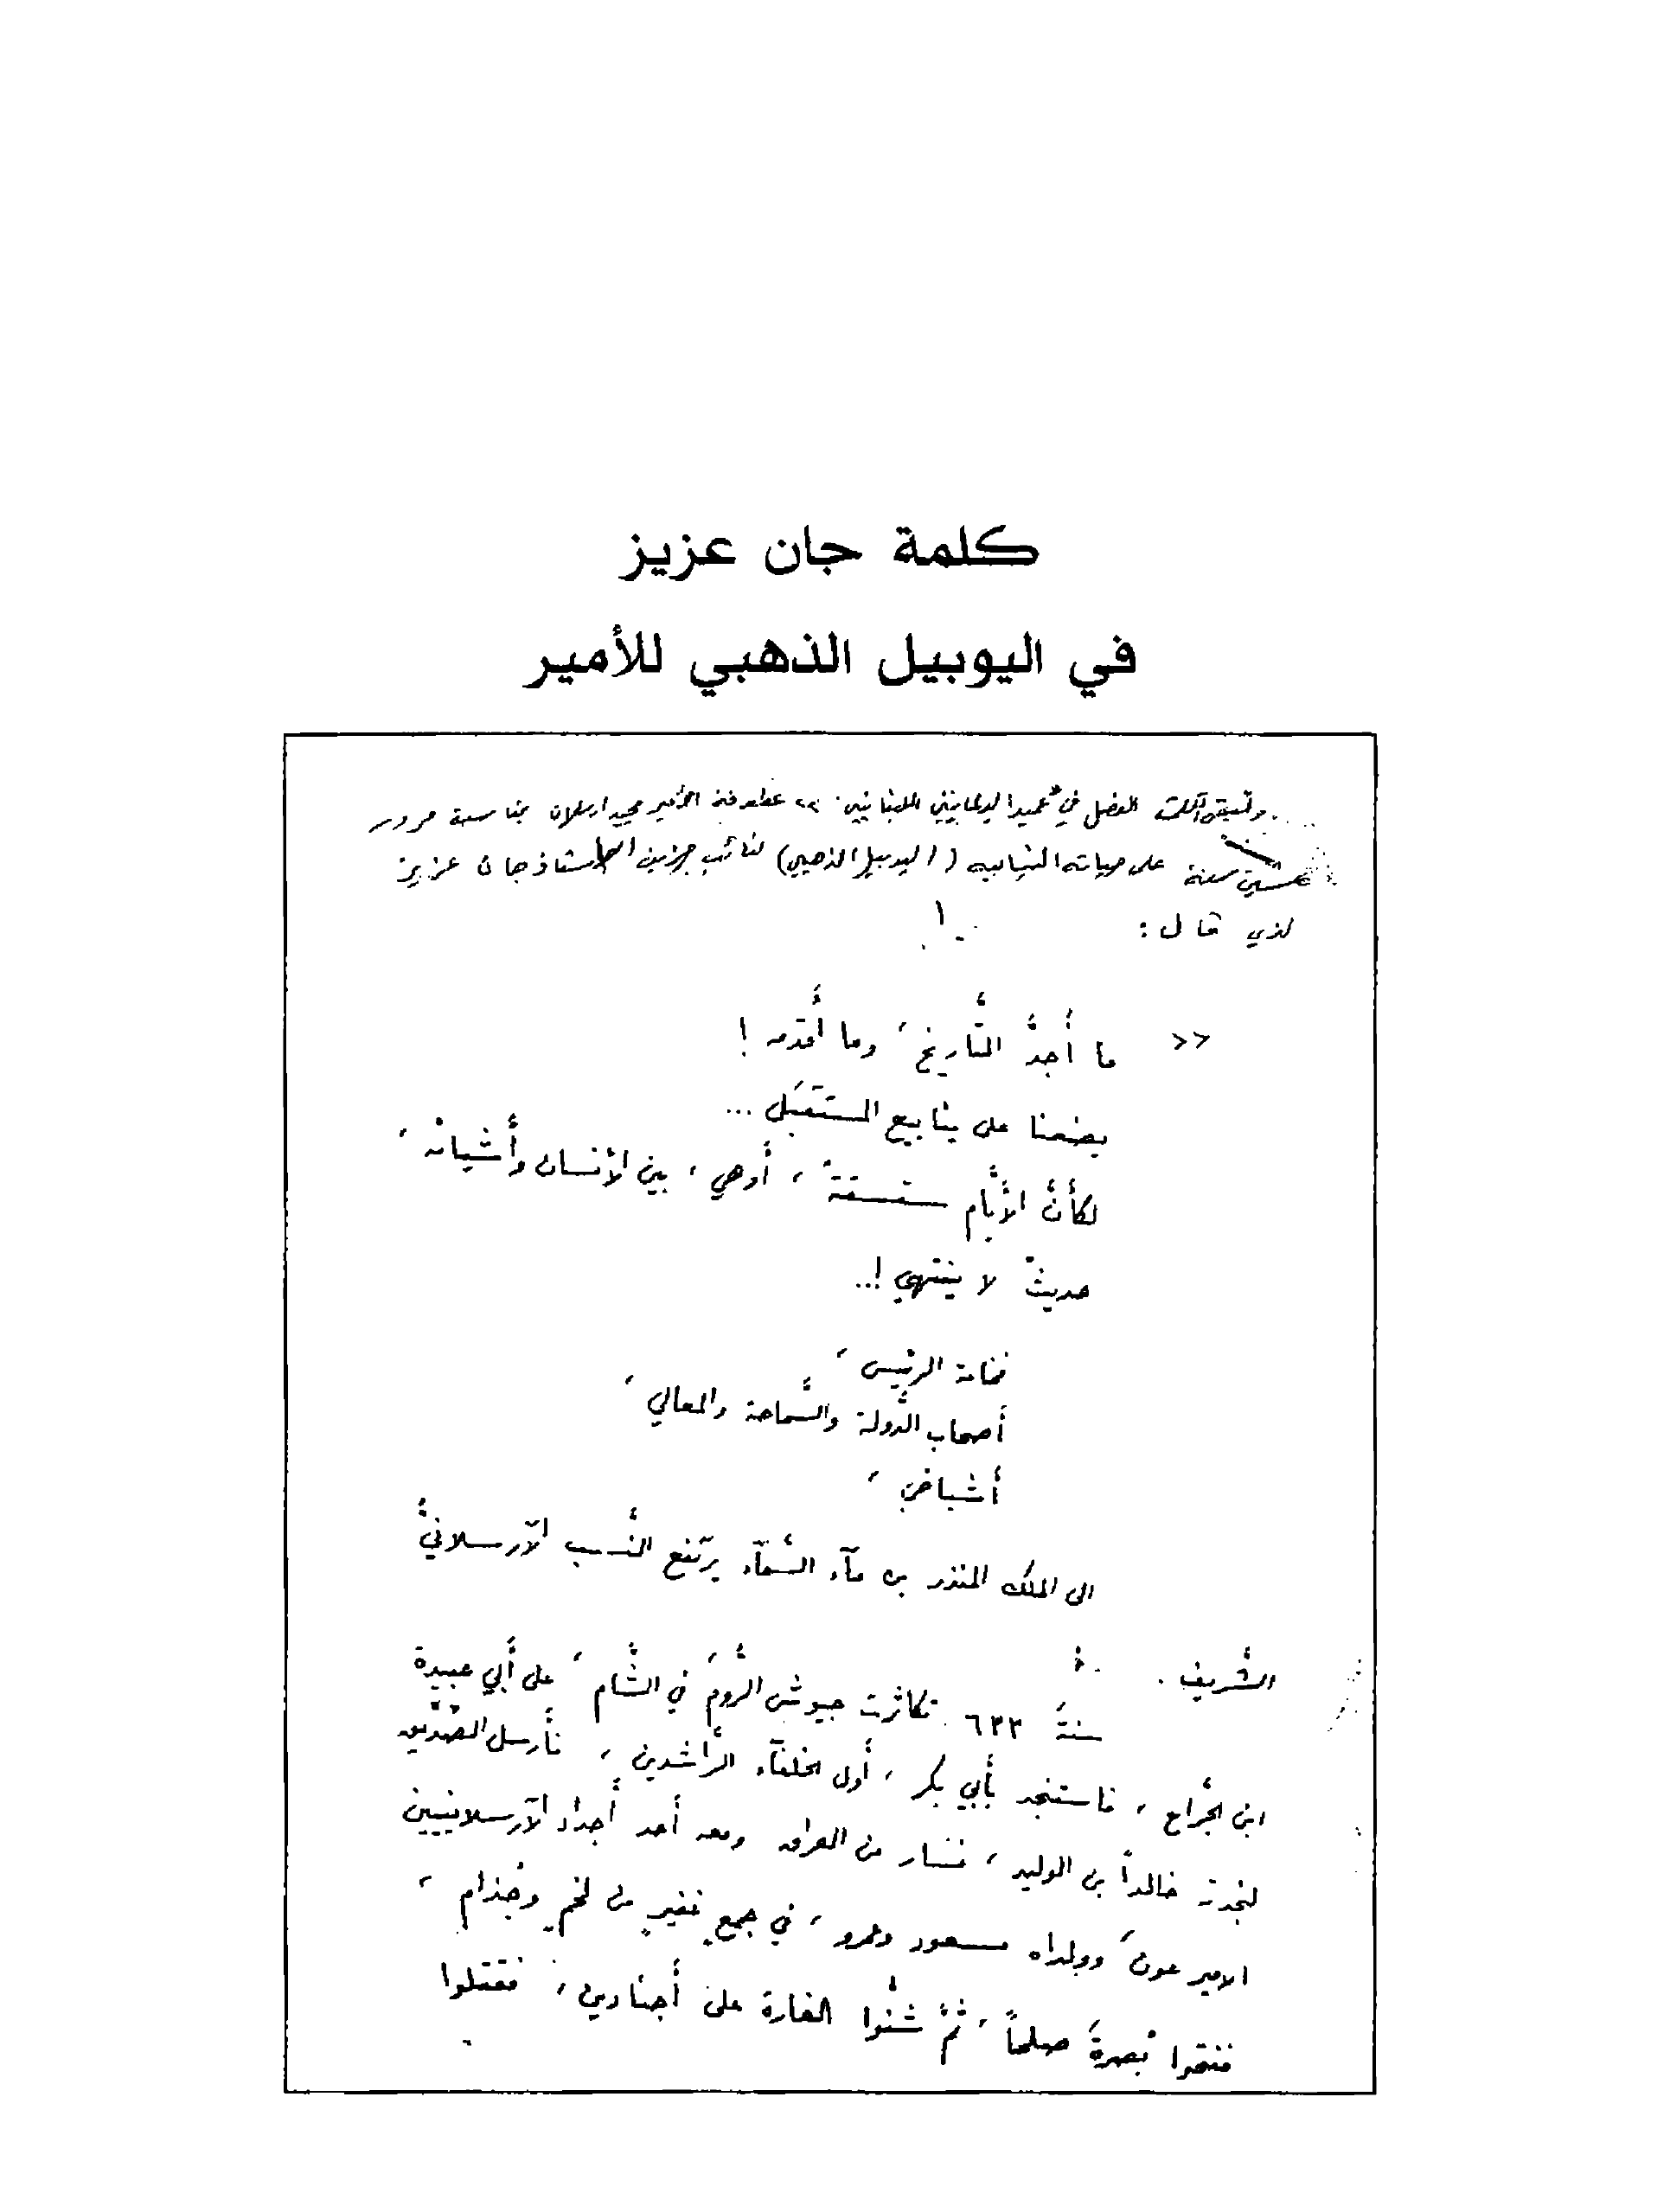 كلمة جان عزيز
في اليوبيل الذهبي للأمير
الفضل في عميد البرلمانيين اللبنانيين عطوفة الأمير مجيد ارسلان بمناسبة مرور
سنة على حياته النيابيه (اليوبيل الذهبي) لنائب جزين الأستاذ جان عزيز
لذي قال :
» ما أَجدَّ التَّاريخ ، وما أَقدمه !
يضعنا على ينابيع المستقبَل ...
لكأَنَّ الأيَّام سقسقةٌ ، أَوهي ، بين الأنسان وأَشيائه ،
حديثٌ لا ينتهي !..
فخامة الرئيس ،
أصحاب الدَّولة والسَّماحة والمعالي ،
أَشياخي ،
الى الملك المنذر بن مآء السَّمآء يرتفع النَّسب الآرسلانيُّ
الشَّريف .
سنةَ ٦٣٣ تكاثرت جيوش الرُّومَ في الشَّام ، على أَبي عبيدة
ابن الجَّراح ، فاستنجد بأَبي بكر ، أَول الخلفآء الرَّاشدين ، فأَرسل الصّدّيق
لنجدته خالداً بن الوليد ، فسار من العراق ومعه أَحد أَجداد الآرسلانيين
الامير عون َ وولداه مسعود وعمرو ، في جمعٍ غفيرٍ من لخمٍ وجُذام ،
ففتحوا بُصرةَ صلحاً ، ثمَّ شنُّوا الغارة على أَجنادين ، فقتلوا